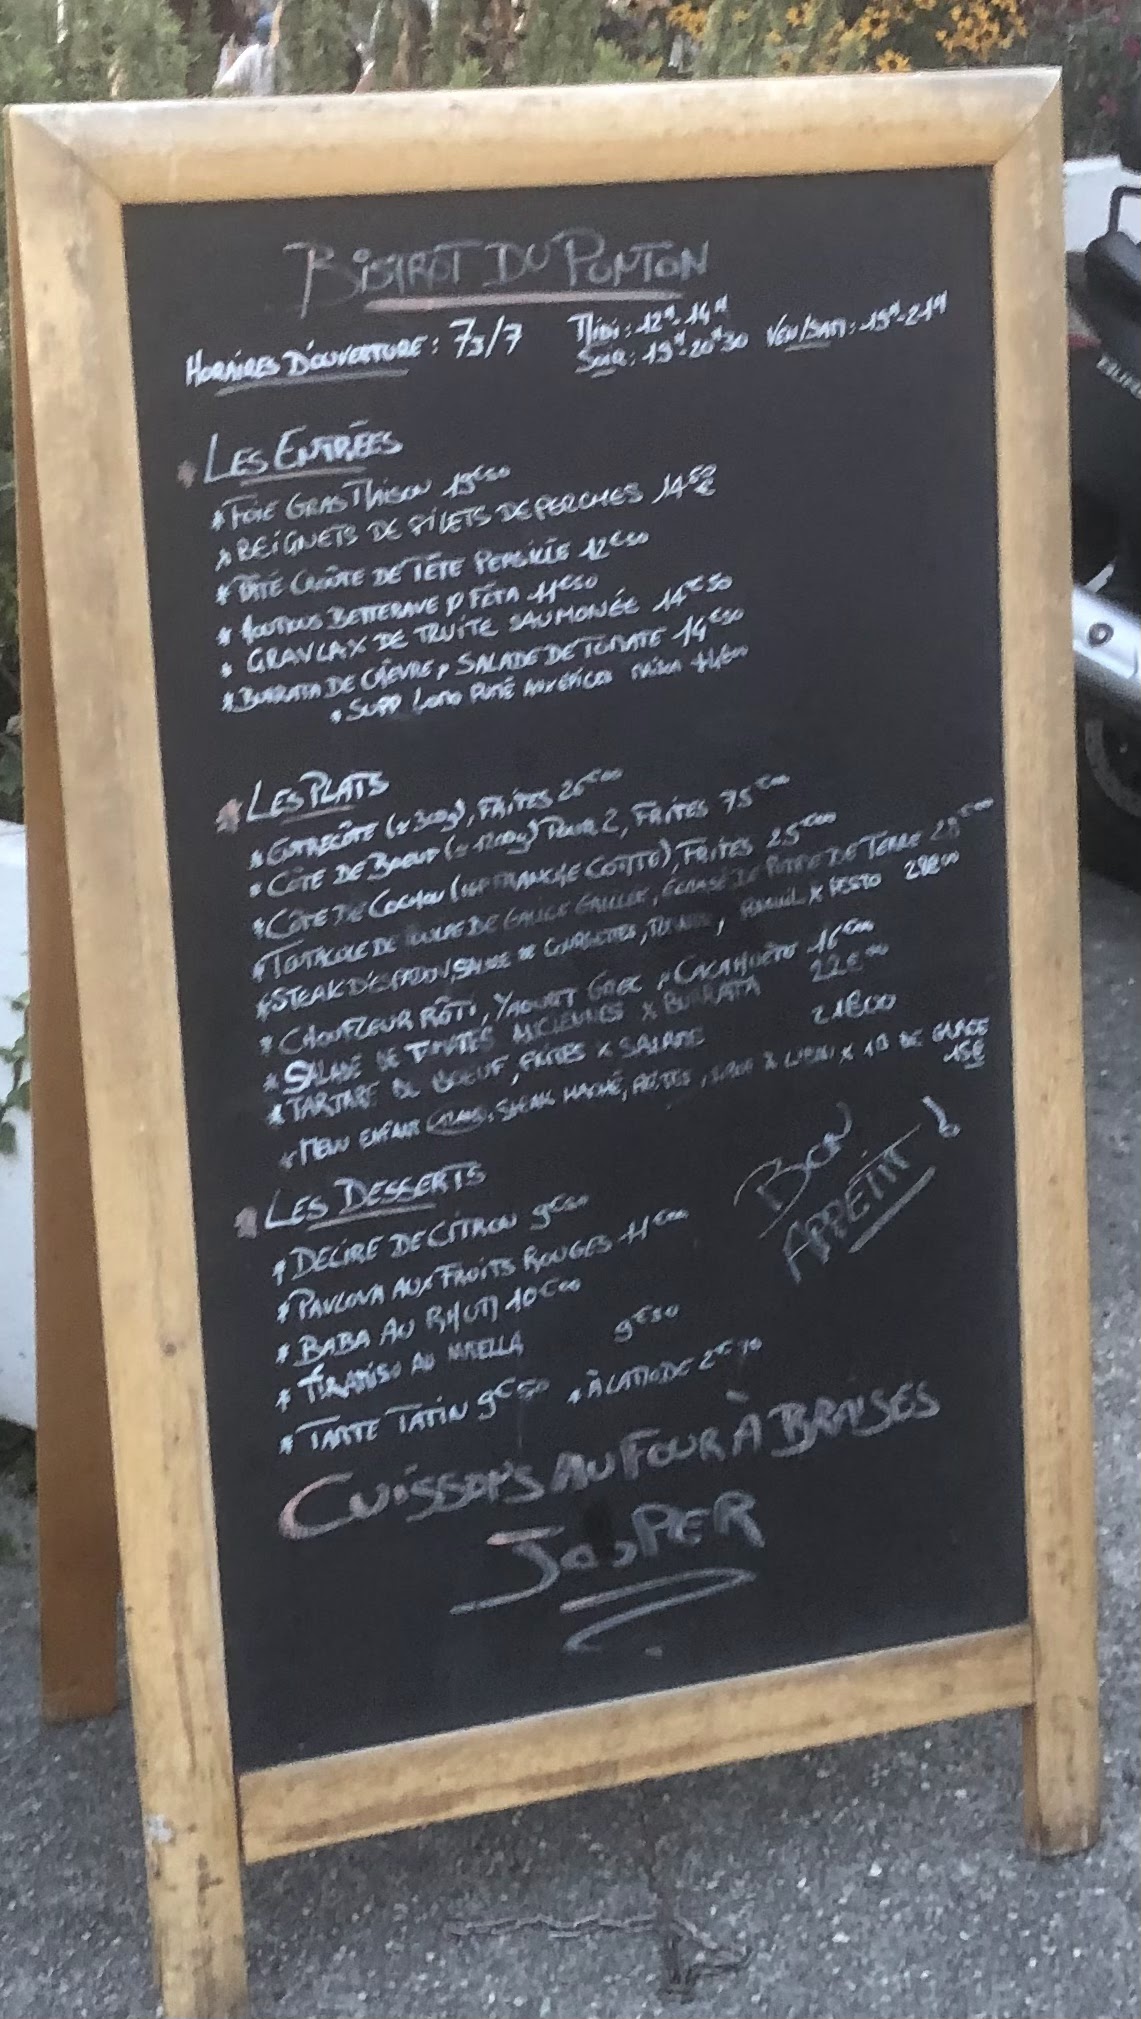 BISTROT DU PONTON
HORAIRES D'OUVERTURE : 7J/7
MIDI : 12H-14H
SOIR : 19H-20H30 VEN/SAM : 19H-21H
LES ENTRÉES
* FOIE GRAS MAISON 19€50
* BEIGNETS DE FILETS DE PERCHES 14€50
* PÂTÉ CROÛTE DE TÊTE PERSILLÉE 12€50
* HOUMOUS BETTERAVE & FÉTA 11€50
* GRAVLAX DE TRUITE SAUMONÉE 14€50
* BURRATA DE CHÈVRE, SALADE DE TOMATE 14€50
* SUPP FUMÉ AUX ÉPICES MAISON
LES PLATS
* ENTRECÔTE (≈ 300g), FRITES 26€00
* CÔTE DE BOEUF (≈ 1200g) POUR 2, FRITES 75€00
* CÔTE DE COCHON (FRANCHE COMTÉ), FRITES 25€00
* TENTACULE DE POULPE DE GALICE GRILLÉE, ÉCRASÉ DE POMME DE TERRE
* STEAK D'ESPADON, COURGETTES, X PESTO 28€00
* CHOUFLEUR RÔTI, YAOURT GREC, CACAHUÈTE 16€00
* SALADE DE TOMATES ANCIENNES X BURRATA 22€00
* TARTARE DE BOEUF, FRITES X SALADE 21€00
* MENU ENFANT STEAK HACHÉ, SIROP X 1B DE GLACE
15€
LES DESSERTS
* DÉLIRE DE CITRON 9€50
* PAVLOVA AUX FRUITS ROUGES 11€00
* BABA AU RHUM 10€00
* TIRAMISU AU 9€50
* TARTE TATIN 9€50 * À LA MODE
BON
APPÉTIT !
CUISSONS AU FOUR À BRAISES
JOSPER